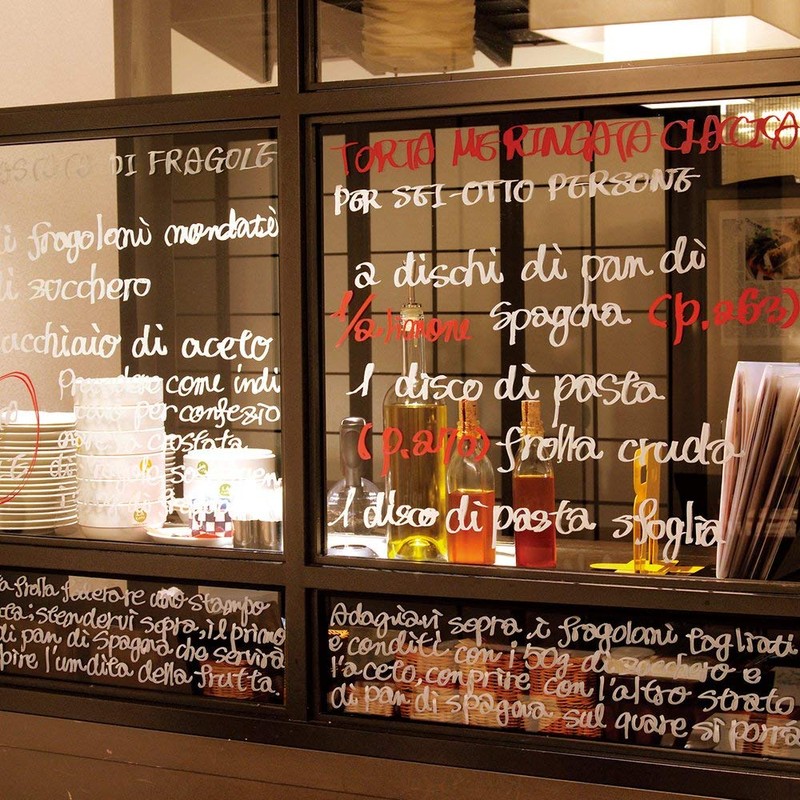 DI FRAGOLE
ì fragolonì mondatì
dì zucchero
acchiaìo dì aceto
Prendere come indi
per confezio
crostata
TORTA MERINGATA CLACCICA
PER SEI-OTTO PERSONE
2 dischi dì pan dì
1/2 limone Spagna (p.263)
1 disco dì pasta
(p.270) frolla cruda
1 disco dì pasta sfoglia
a frolla foderare uno stampo
ta; stendervi sopra, il primo
di pan di Spagna che servirà
pire l'umdita della frutta.
Adagiarvi sopra i fragoloni tagliati
e conditi con i 50g di zucchero e
l'aceto, conprire con l'altro strato
di pan di spagna sul quare si porrà